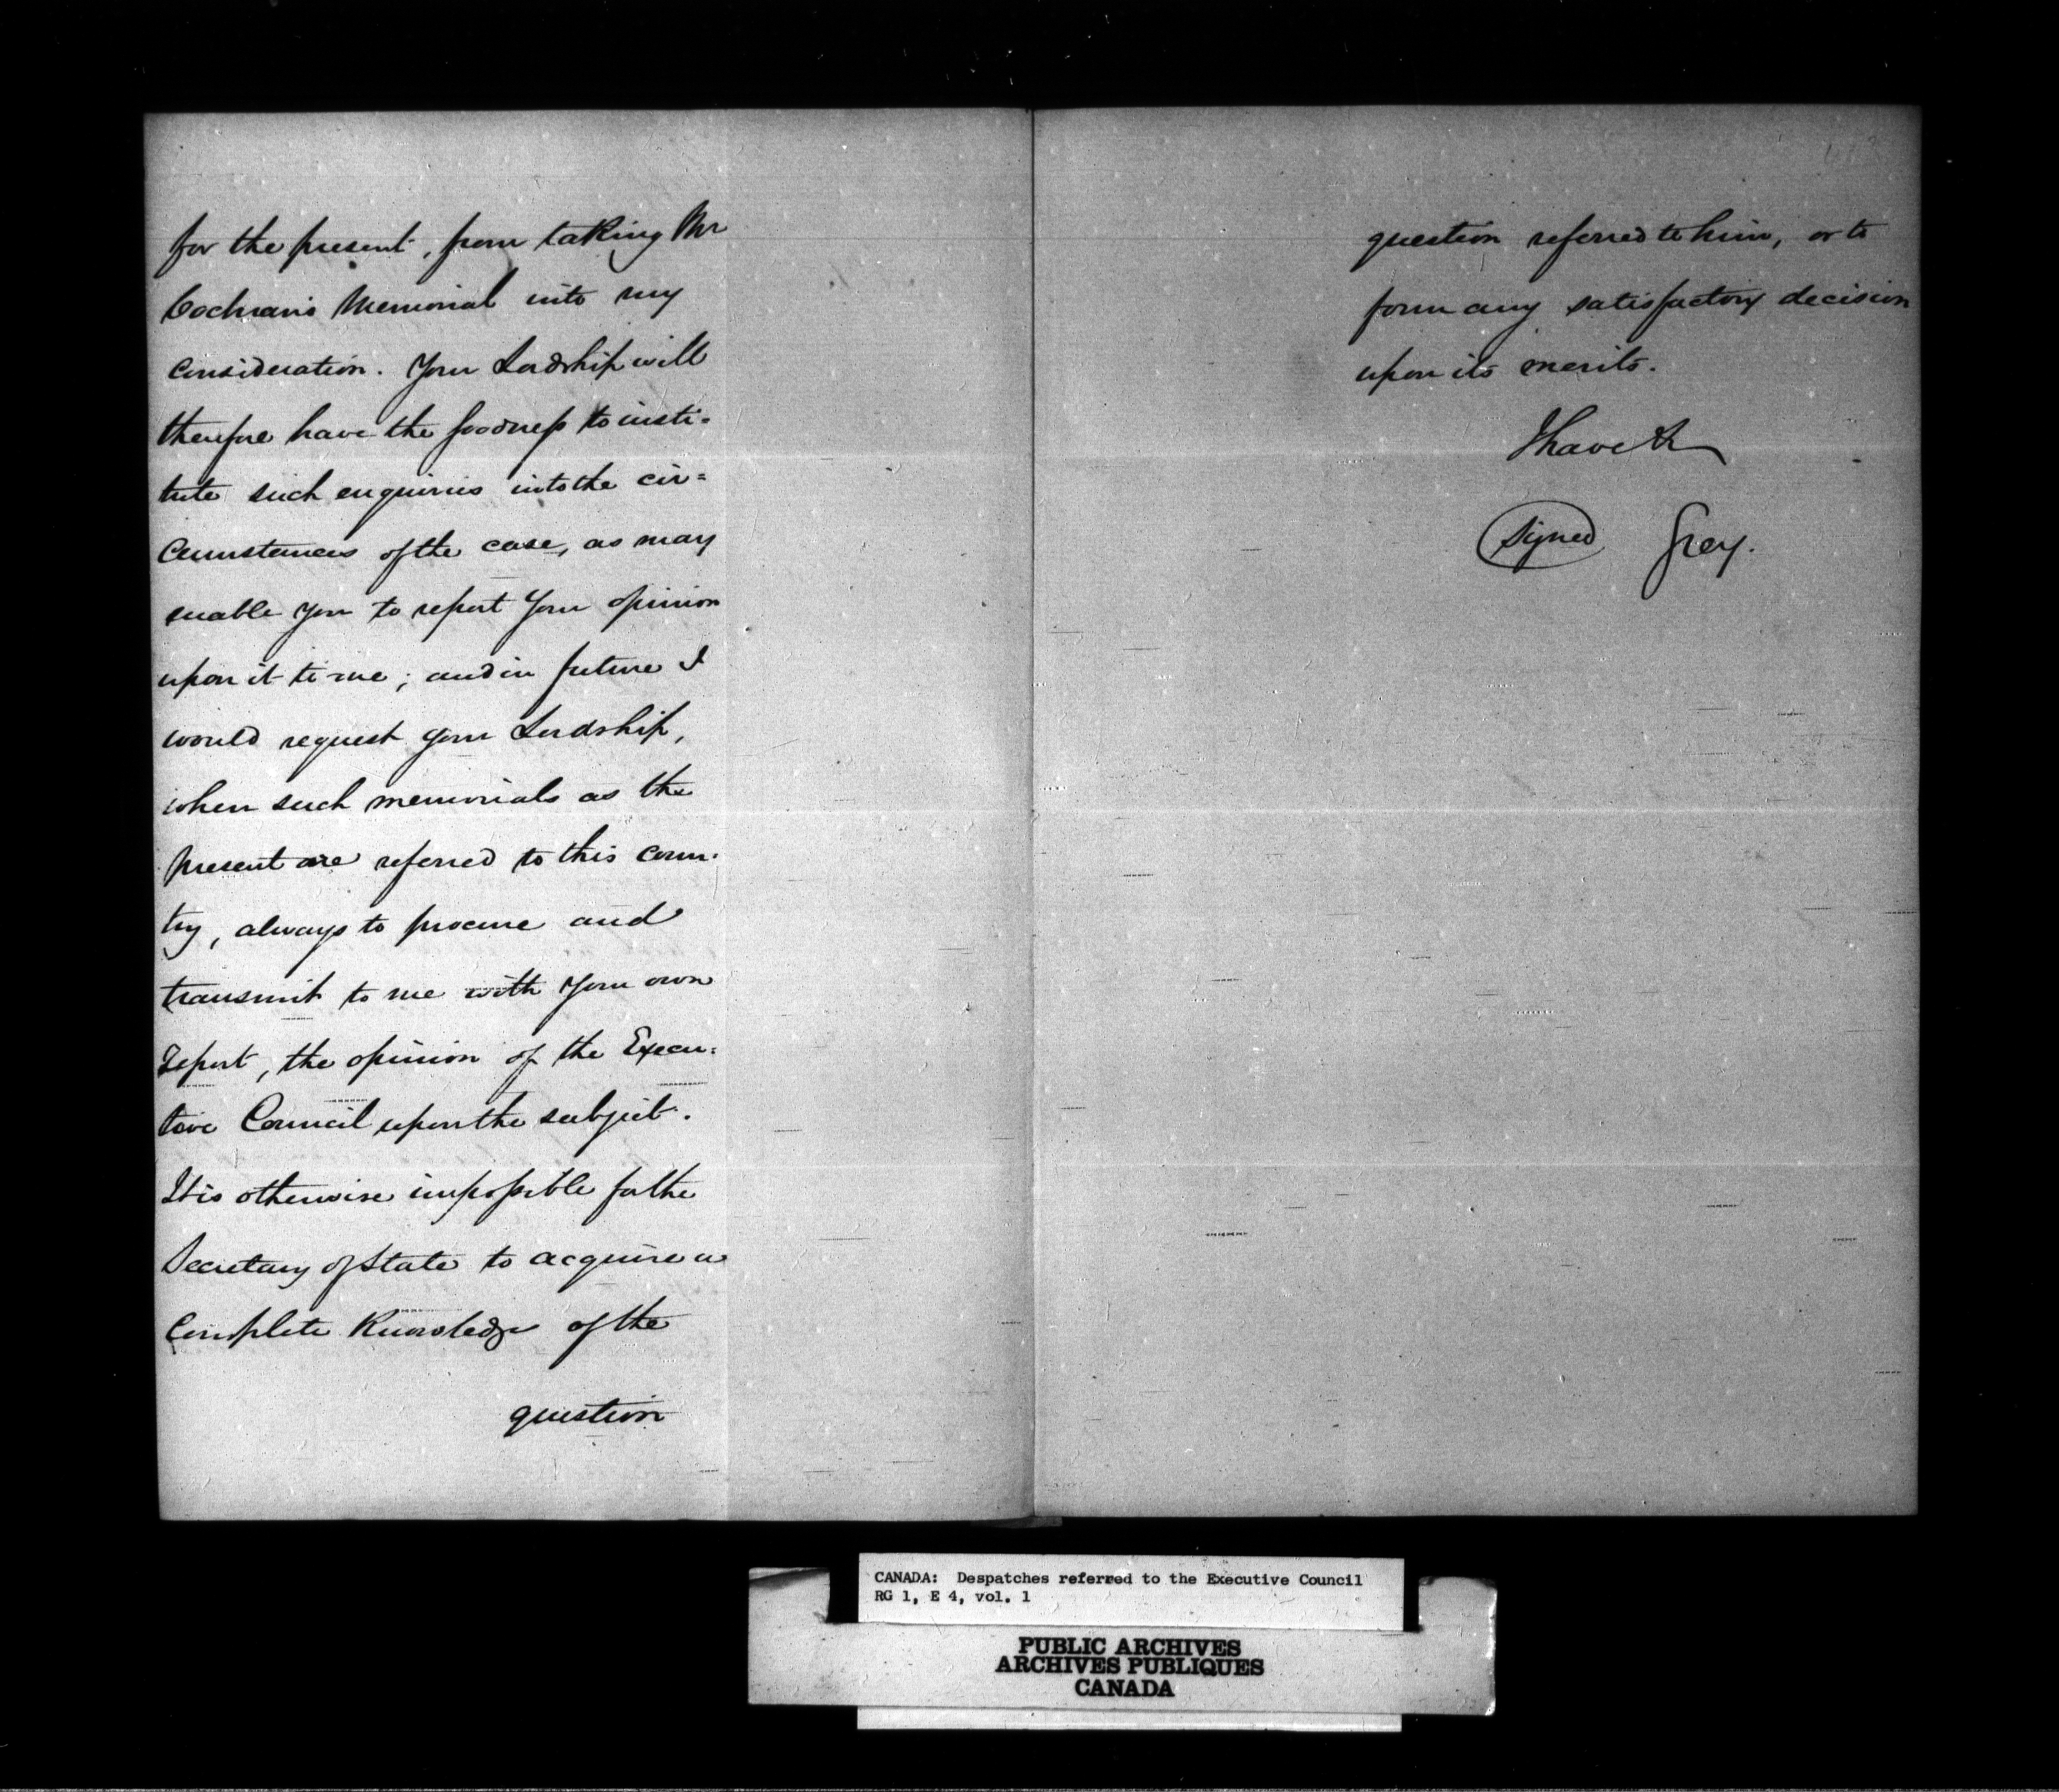 for the present, from taking Mr
Cochran's Memorial into my
consideration. Your Lordship will
therefore have the goodness to insti=
tute such enquiries into the cir=
cumstances of the case, as may
enable you to report your opinion
upon it to me; and in future I
would request your Lordship,
when such memorials as the
present are referred to this coun-
try, always to procure and
transmit to me with your own
Report, the opinion of the Execu=
tive Council upon the subject.
It is otherwise impossible for the
Secretary of State to acquire a
complete Knowledge of the
question
question referred to him, or to
form any satisfactory decision
upon its merits.
I have &c
Signed Grey.
CANADA: Despatches referred to the Executive Council
RG 1, E 4, vol. 1
PUBLIC ARCHIVES
ARCHIVES PUBLIQUES
CANADA